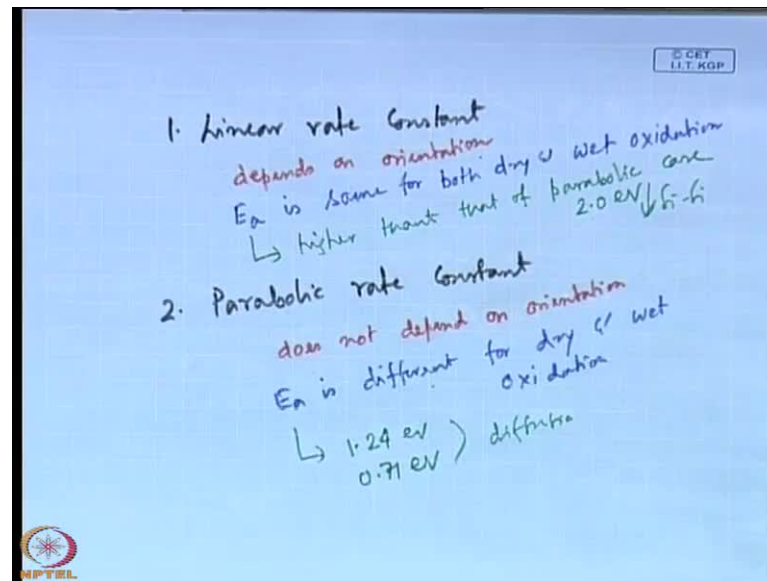 © CET
I.I.T. KGP
1. Linear rate Constant
depends on orientation
Ea is same for both dry & wet oxidation
↳ higher thant that of parabolic case
2.0 eV ↓ Si-Si
2. Parabolic rate Constant
does not depend on orientation
Ea is different for dry & wet
oxidation
↳ 1.24 eV
0.71 eV ) diffusio
NPTEL